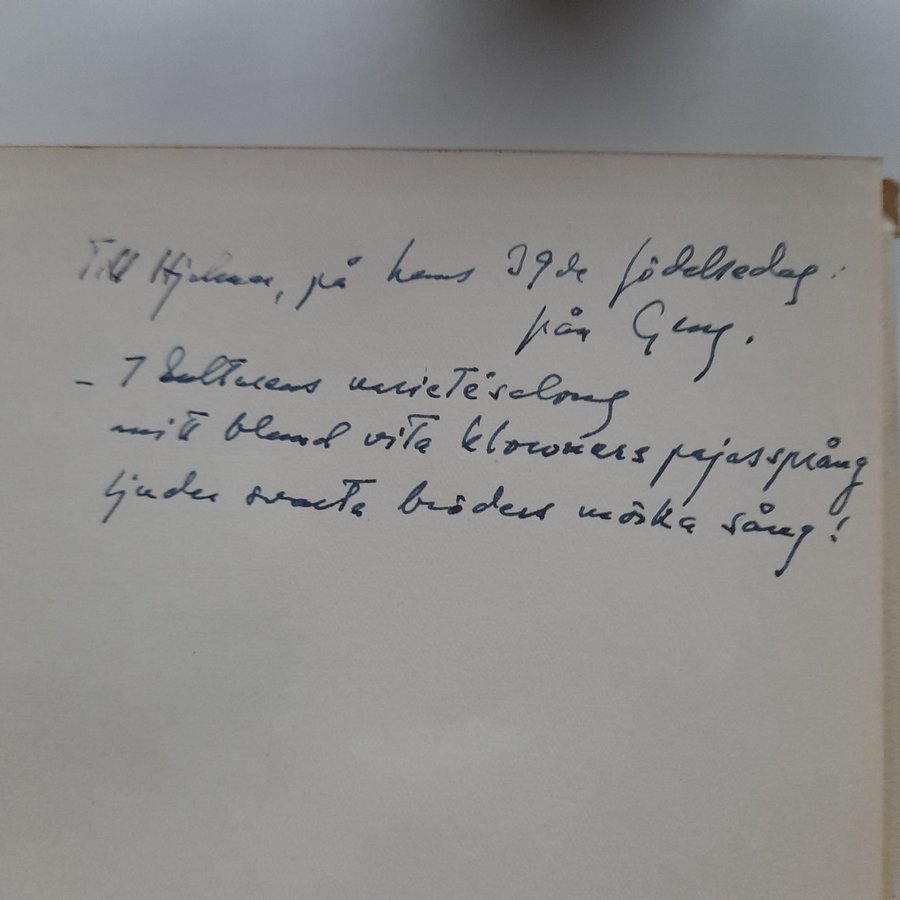 Till Hjalmar, på hans 39de födelsedag.
från Gung.
– I kulturens varietésalong
mitt bland vita clowners pajassprång
ljuder svarta bröders mörka sång!